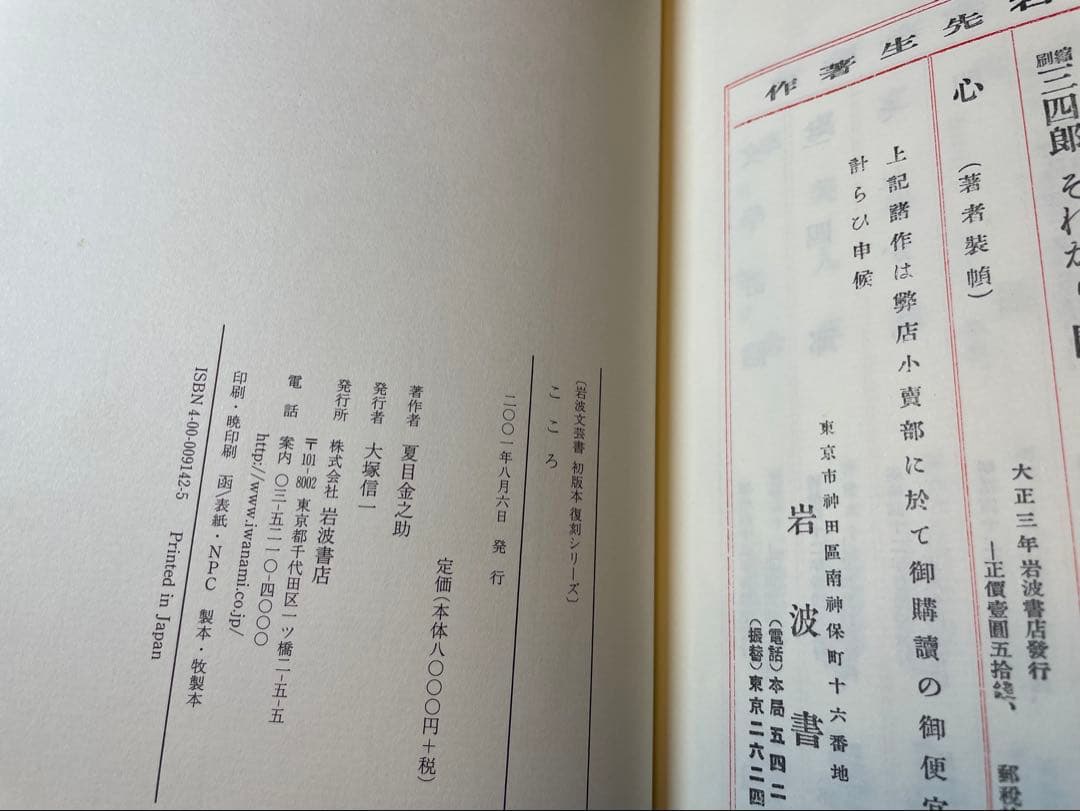 先生著作
縮刷
三四郎 それから
大正三年岩波書店發行
―正價壹圓五拾錢、
郵稅
心 (著者裝幀)
上記諸作は弊店小賣部に於て御購讀の御便宜
計らひ申候
東京市神田區南神保町十六番地
岩波書
(電話)本局五四二
(振替)東京二六二四
〔岩波文芸書 初版本 復刻シリーズ〕
こころ
二〇〇一年八月六日 発行
定価(本体八〇〇〇円+税)
著作者 夏目金之助
発行者 大塚信一
発行所 株式会社 岩波書店
〒101-8002 東京都千代田区一ツ橋二-五-五
電話 案内 〇三-五二一〇-四〇〇〇
http://www.iwanami.co.jp/
印刷・暁印刷 函/表紙・NPC 製本・牧製本
ISBN 4-00-009142-5 Printed in Japan